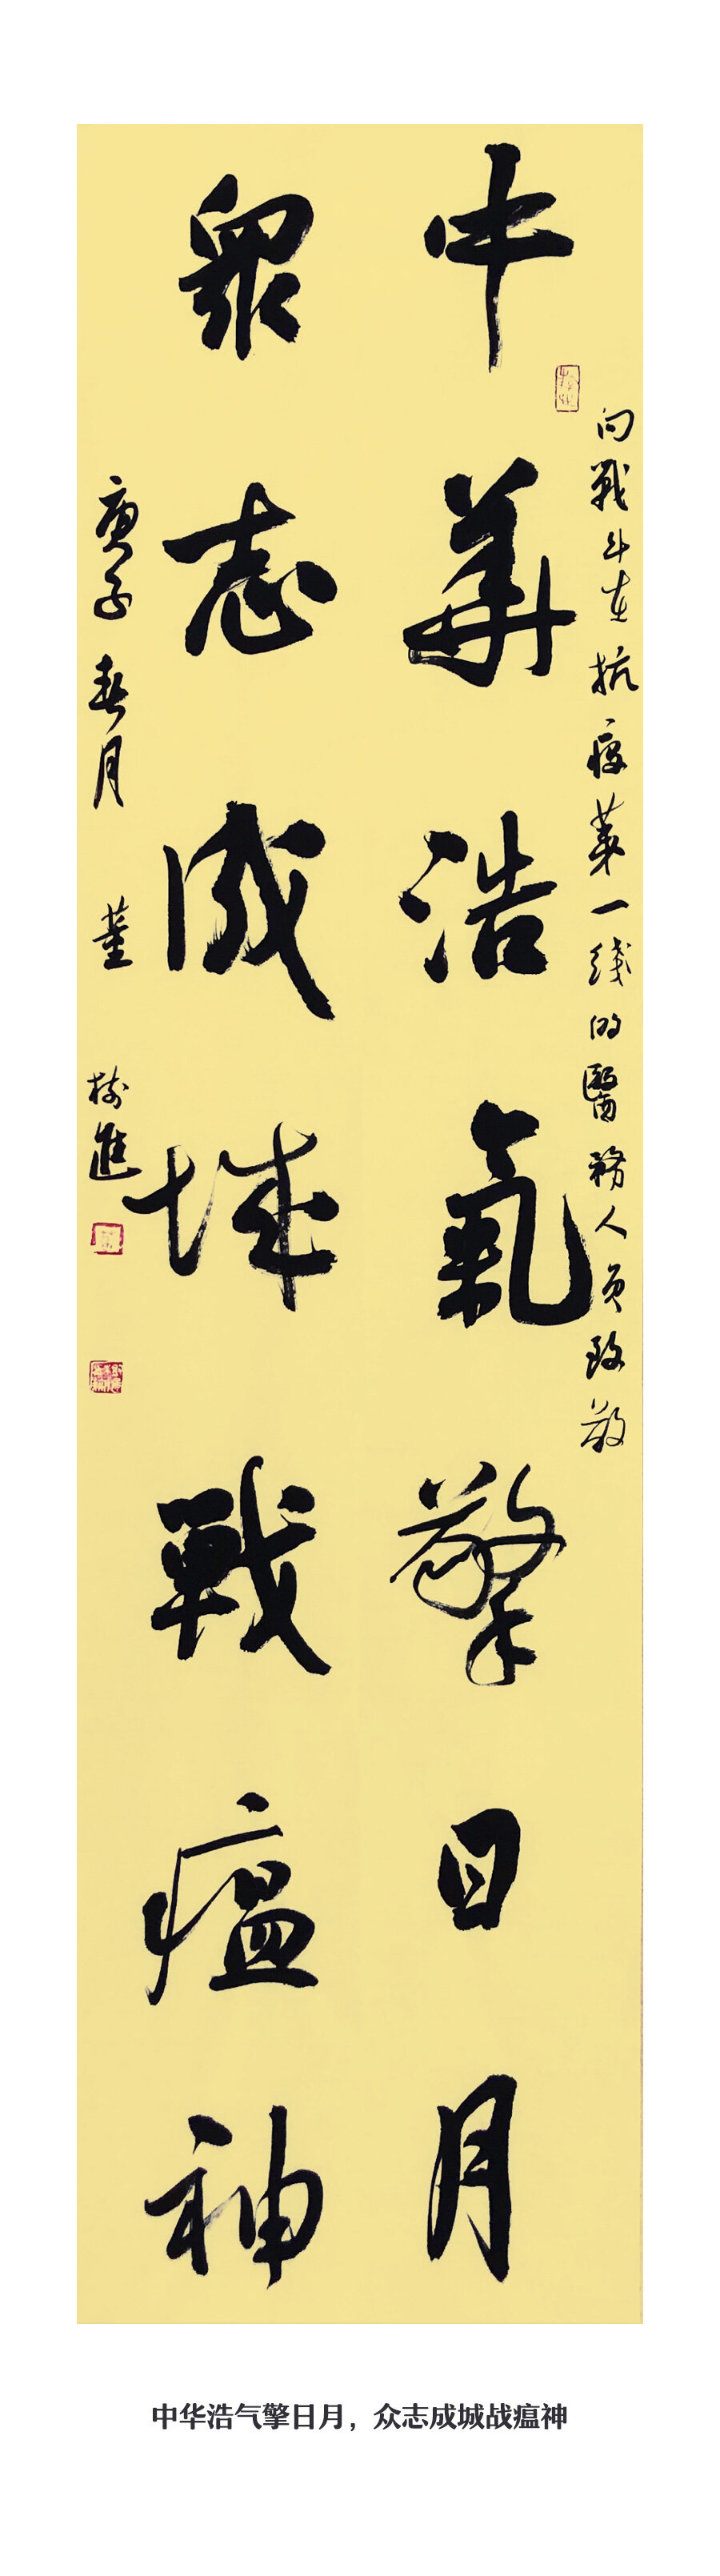 向戰斗在抗疫第一线的醫務人员致敬
中華浩氣擎日月
眾志成城戰瘟神
庚子春月 董樹進
中华浩气擎日月，众志成城战瘟神